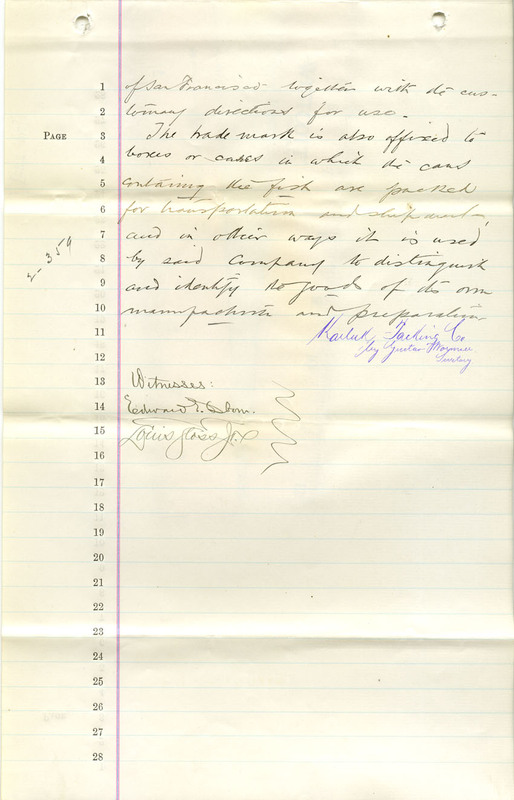 1 of San Francisco together with the cus-
2 tomary directions for use.
PAGE 3 The trade mark is also affixed to
4 boxes or cases in which the cans
5 containing the fish are packed
6 for transportation and shipment,
7 and in other ways it is used
2-359
8 by said Company to distinguish
9 and identify the goods of its own
10 manufacture and preparation
11 Karluk Packing Co
by Gustav
12 Secretary
13 Witnesses:
14 Edward E. Osborn.
15 Louis Sloss Jr
16
17
18
19
20
21
22
23
24
25
26
27
28